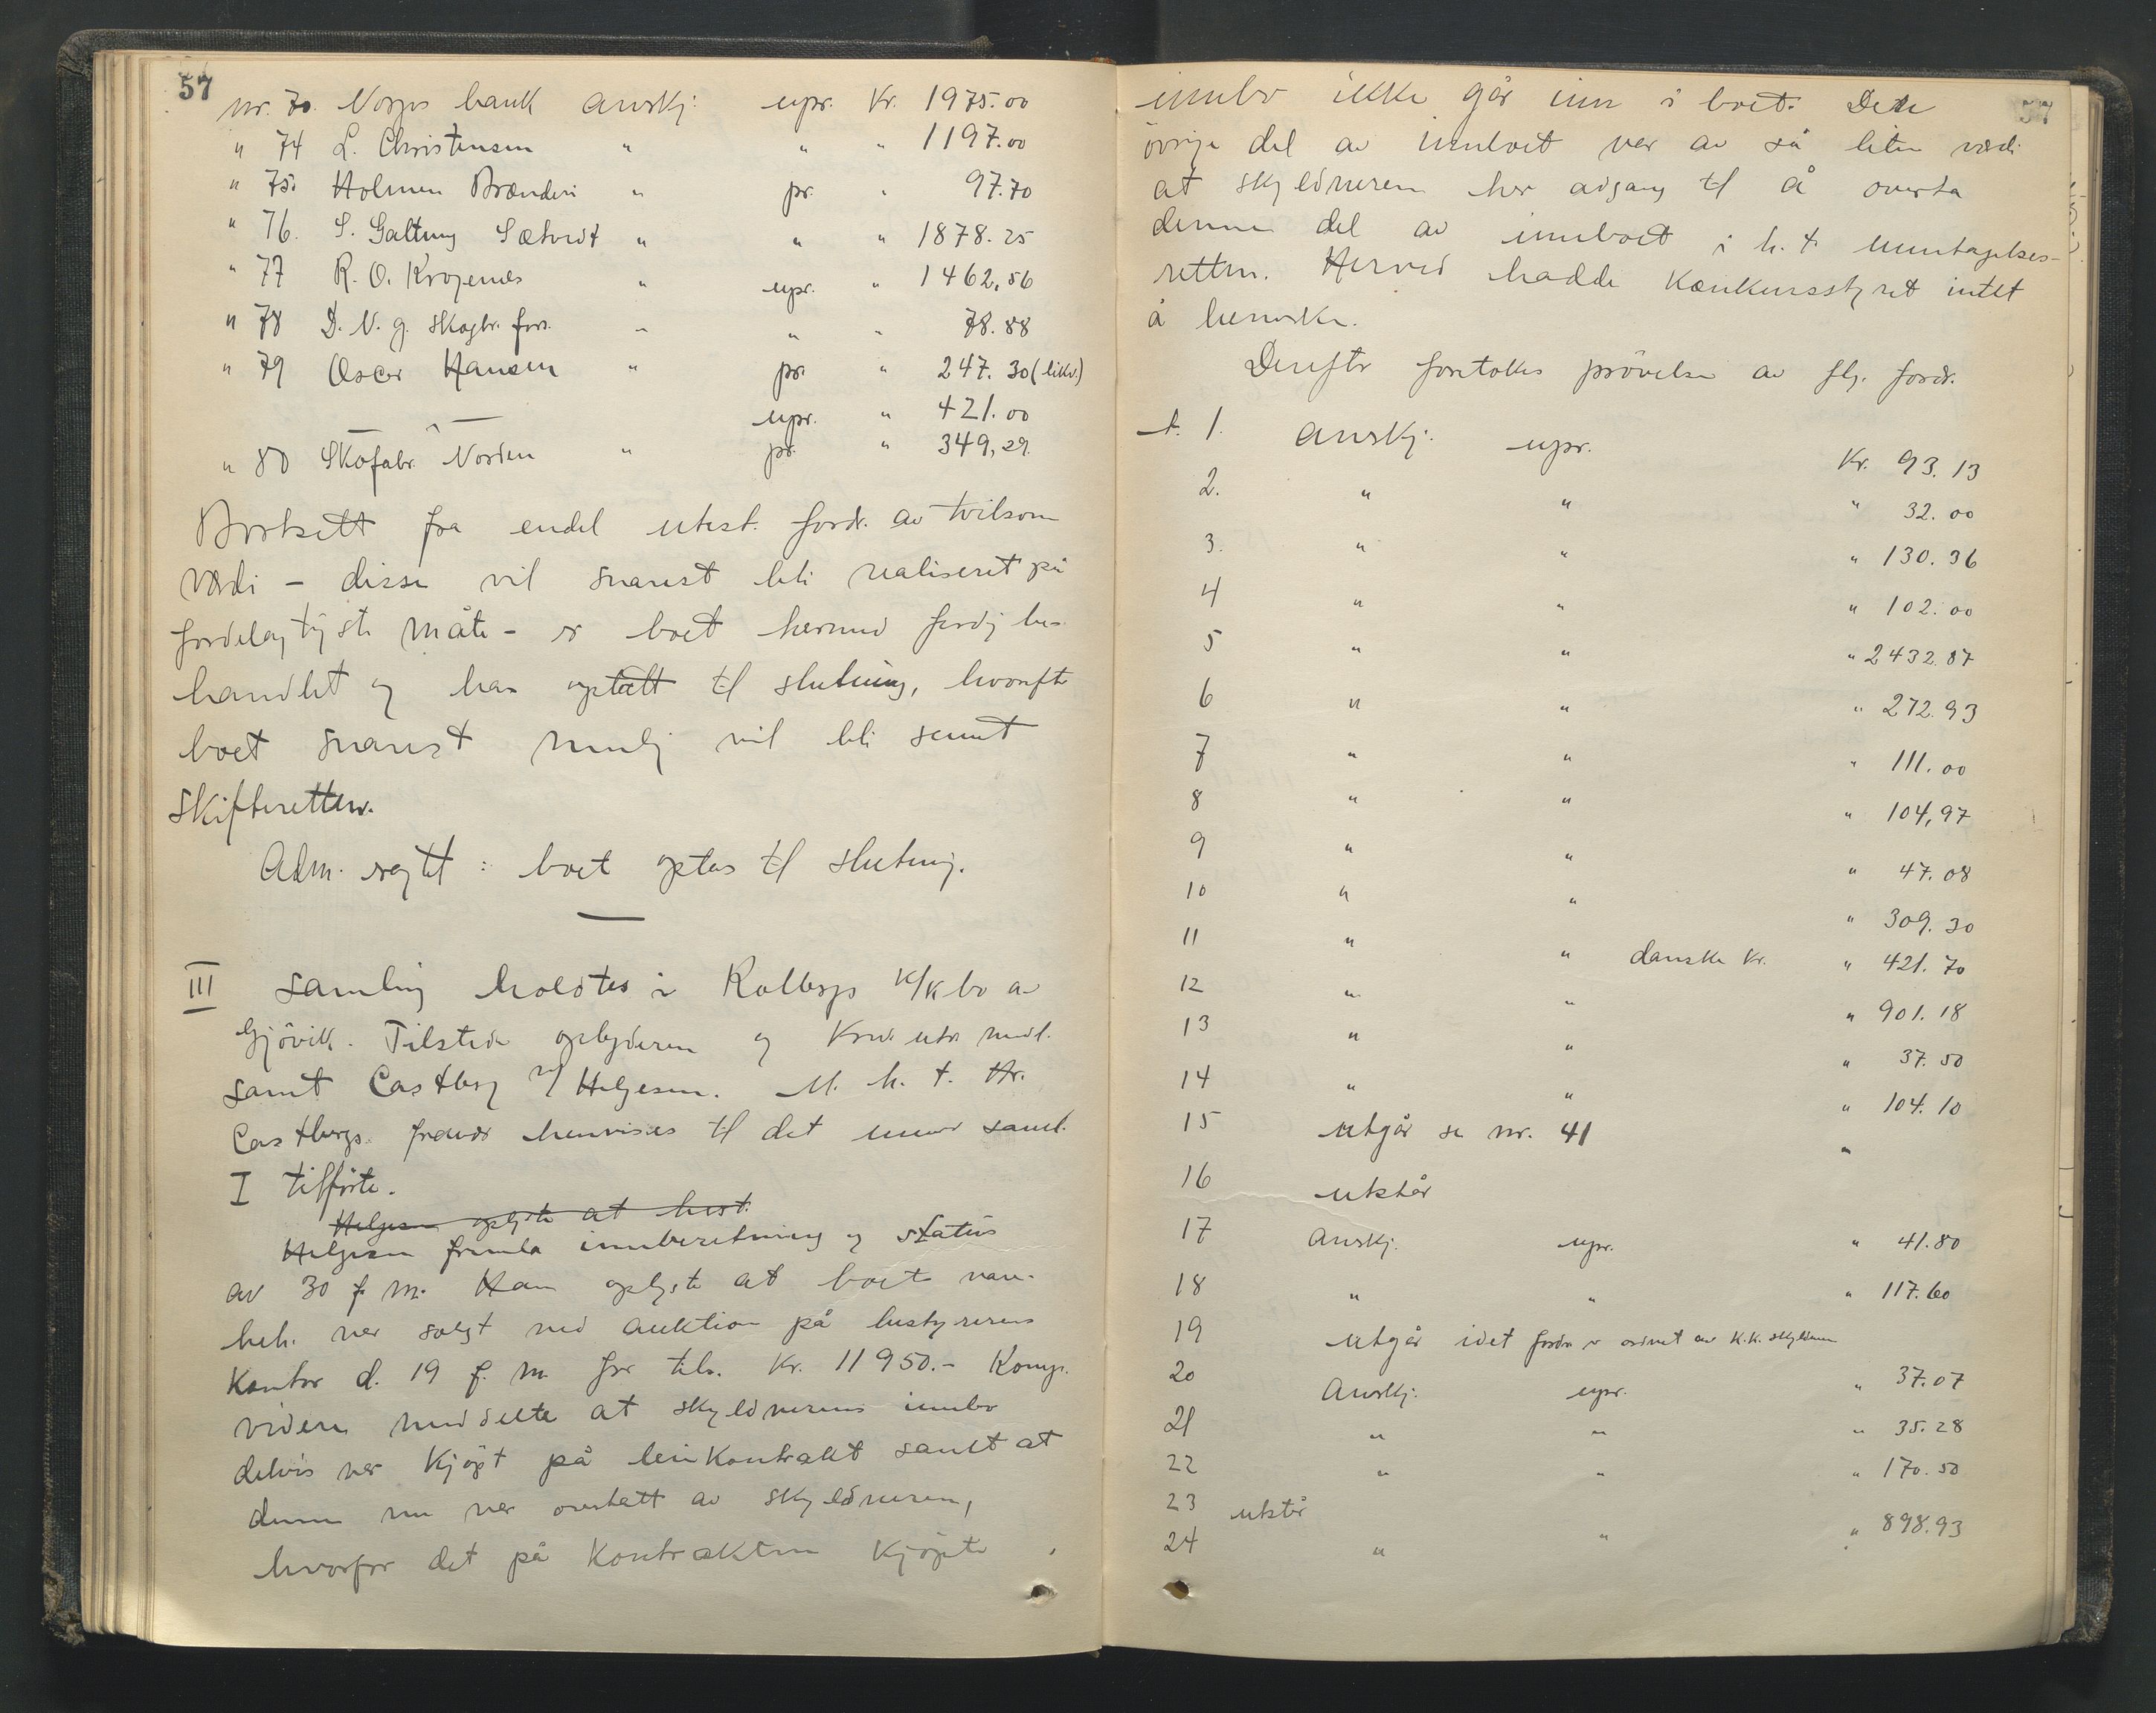 57
nr. 70. Norges bank anerkj: upr. Kr. 1975.00
" 74 L. Christensen " " " 1197.00
" 75. Holmen Brænderi " pr. " 97.70
" 76. S. Galtung Sætveit " " " 1878.25
" 77 R. O. Krogenæs " upr. " 1462,56
" 78 D. N. g. Skogbr. fors. " " " 78.88
" 79 Oscar Hansen " pr. " 247.30 (likv.)
— " — upr. " 421.00
" 80 Skofabr. Norden " pr. " 349,29.
Bortsett fra endel utest. fordr. av tvilsom
værdi - disse vil snarest bli realiseret på
fordelagtigste måte - er boet hermed ferdig be-
handlet og kan optatt til slutning, hvorefter
boet snarest mulig vil bli sendt
skifteretten.
Adm. regtt: boet optas til slutning.
III Samling holdtes i Kolbergs k/k bo av
Gjövik. Tilstede opbyderen og Kred. utv. medl.
samt Castberg v/ Helgesen. M. h. t. Hr.
Castbergs fravær henvises til det under saml.
I tilförte.
Helgesen oplyste at best.
Helgesen fremla innberetning og status
av 30 f. m. Han oplyste at boets vare-
beh. var solgt ved auktion på bestyrerens
Kontor d. 19 f. m. for tils. Kr. 11950.- Komp.
videre meddelte at skyldnerens innbo
delvis var kjöpt på leiekontrakt samt at
denne nu var overtatt av skyldneren,
hvorfor det på kontrakten kjöpte
innbo ikke går inn i boet. Den 57
övrige del av innboet var av så liten værdi
at skyldneren har adgang til å overta
denne del av innboet i h. t. unntagelses-
retten. Herved hadde konkursstyret intet
å bemerke.
Derefter foretokes prövelse av flg. fordr.
1. Anerkj. upr. Kr. 93.13
2. " " " 32.00
3. " " " 130.36
4 " " " 102.00
5 " " " 2432.87
6 " " " 272.93
7 " " " 111.00
8 " " " 104,97
9 " " " 47.08
10 " " " 309.30
11 " " danske Kr. " 421.70
12 " " " 901.18
13 " " " 37.50
14 " " " 104.10
15 utgår se nr. 41 "
16 utstår
17 Anerkj. upr. " 41.80
18 " " " 117.60
19 utgår idet fordr er ordnet av K.K. skyldner
20 Anerkj. upr. " 37.07
21 " " " 35.28
22 " " " 170.50
23 utstår
24 " " " 898.93